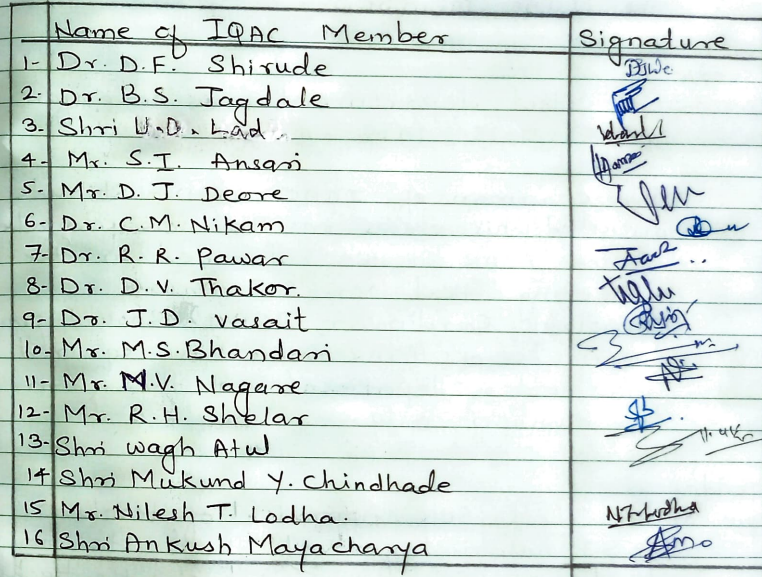 Name of IQAC Member Signature
1- Dr. D.F. Shirude
2- Dr. B.S. Jagdale
3- Shri U.D. Lad.
4- Mr. S.I. Ansari
5- Mr. D. J. Deore
6- Dr. C.M. Nikam
7- Dr. R. R. Pawar
8- Dr. D.V. Thakor.
9- Dr. J.D. vasait
10- Mr. M.S. Bhandari
11- Mr. M.V. Nagare
12- Mr. R.H. Shelar
13- Shri wagh Atul
14 Shri Mukund Y. Chindhade
15 Mr. Nilesh T. Lodha. NTLodha
16 Shri Ankush Mayacharya